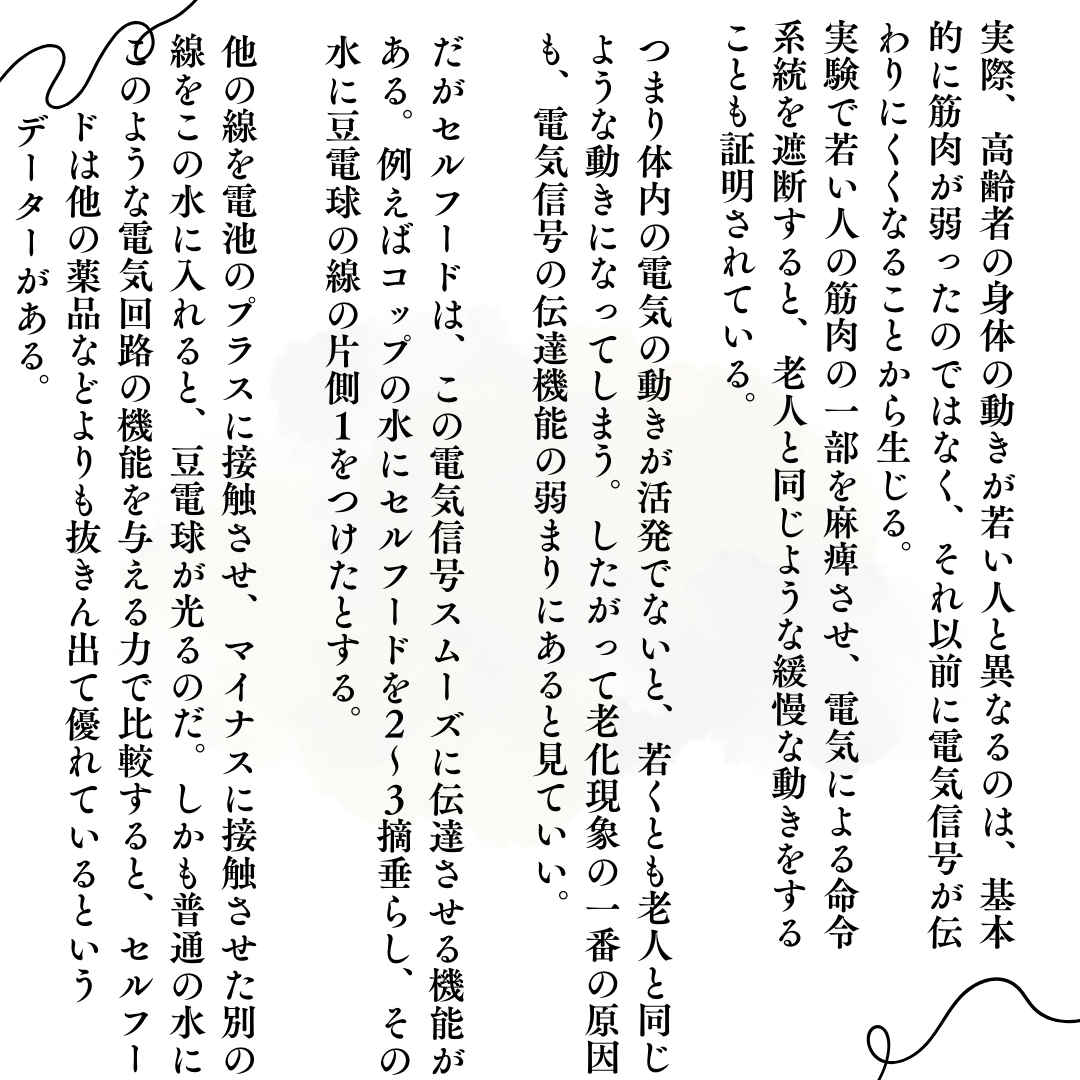 実際、高齢者の身体の動きが若い人と異なるのは、基本
的に筋肉が弱ったのではなく、それ以前に電気信号が伝
わりにくくなることから生じる。
実験で若い人の筋肉の一部を麻痺させ、電気による命令
系統を遮断すると、老人と同じような緩慢な動きをする
ことも証明されている。
つまり体内の電気の動きが活発でないと、若くとも老人と同じ
ような動きになってしまう。したがって老化現象の一番の原因
も、電気信号の伝達機能の弱まりにあると見ていい。
だがセルフードは、この電気信号スムーズに伝達させる機能が
ある。例えばコップの水にセルフードを2〜3摘垂らし、その
水に豆電球の線の片側1をつけたとする。
他の線を電池のプラスに接触させ、マイナスに接触させた別の
線をこの水に入れると、豆電球が光るのだ。しかも普通の水に
このような電気回路の機能を与える力で比較すると、セルフー
ドは他の薬品などよりも抜きん出て優れているという
データーがある。